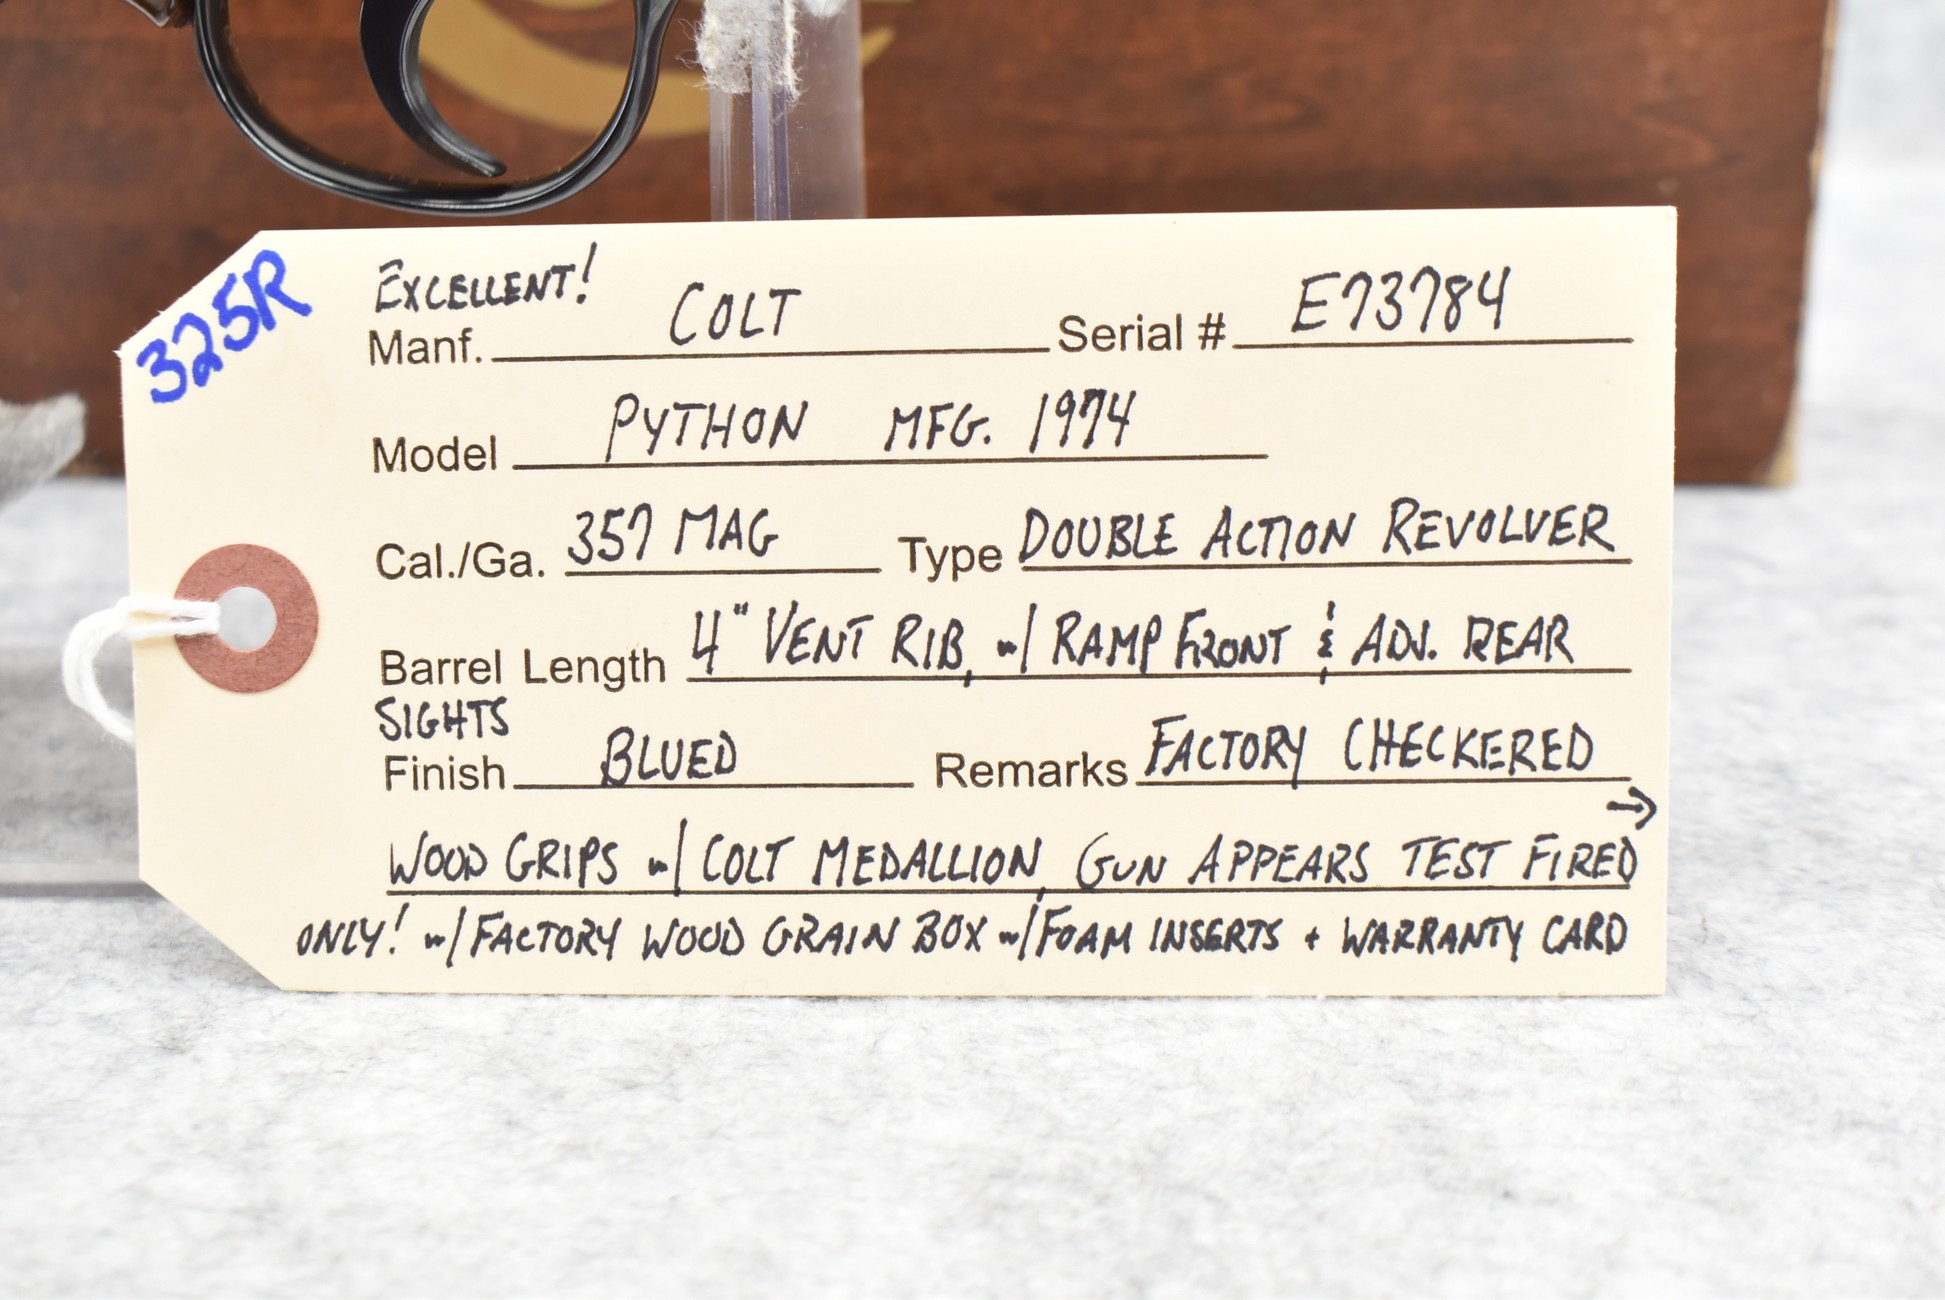 325R
EXCELLENT!
Manf. COLT Serial # E73784
Model PYTHON MFG. 1974
Cal./Ga. 357 MAG Type DOUBLE ACTION REVOLVER
Barrel Length 4" VENT RIB, w/ RAMP FRONT & ADJ. REAR
SIGHTS
Finish BLUED Remarks FACTORY CHECKERED
→
WOOD GRIPS w/ COLT MEDALLION, GUN APPEARS TEST FIRED
ONLY! w/ FACTORY WOOD GRAIN BOX w/ FOAM INSERTS + WARRANTY CARD